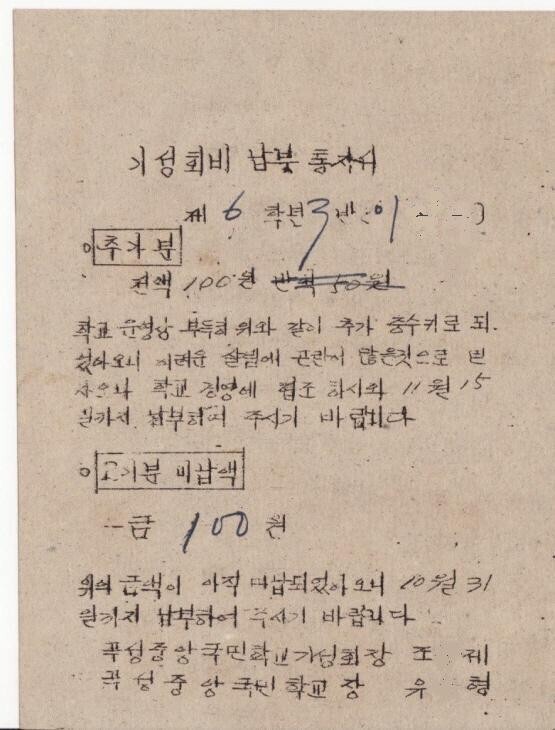 기성회비 납부 통지서
제 6 학년 3 반 (이 )
○ 추가분
전액 100원 반액 50원
학교 운영상 부득히 위와 같이 추가 중수키로 되
었아오니 어려운 살림에 곤란이 많은것으로 믿
사오나 학교 경영에 협조 하시와 11월 15
일까지 납부하여 주시기 바랍니다
○ 고기분 미납액
一金 100 원
위의 금액이 아직 미납되었아오니 10월 31
일까지 납부하여 주시기 바랍니다
곡성중앙국민학교기성회장 조 제
곡성중앙국민학교장 유 형